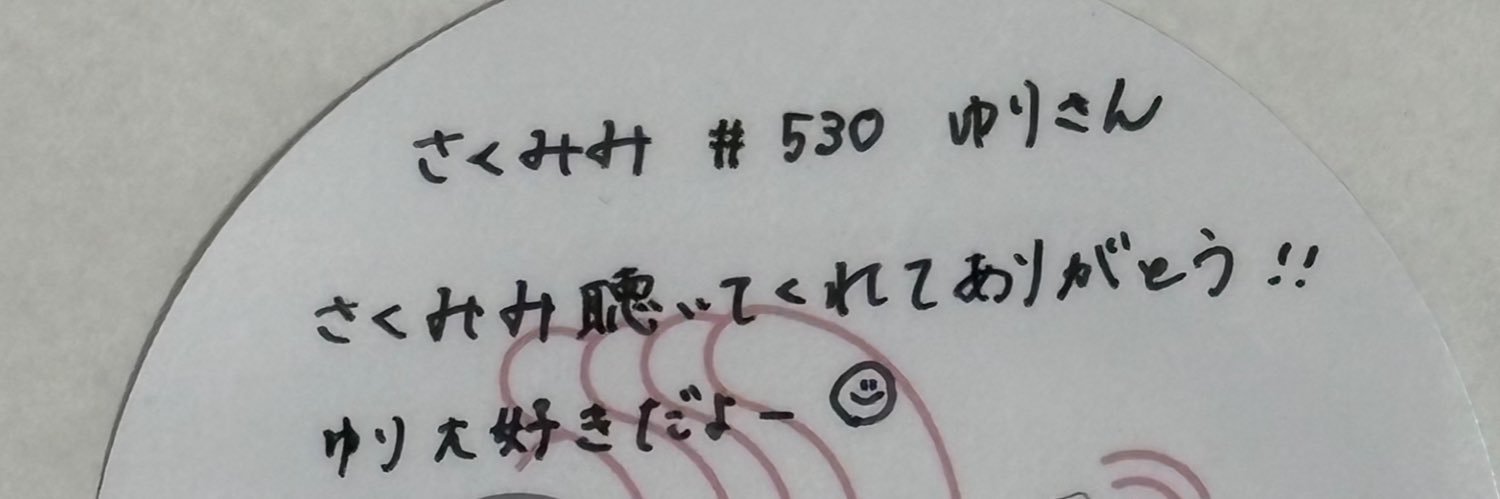 さくみみ #530 ゆりさん
さくみみ聴いてくれてありがとう!!
ゆり大好きだよー